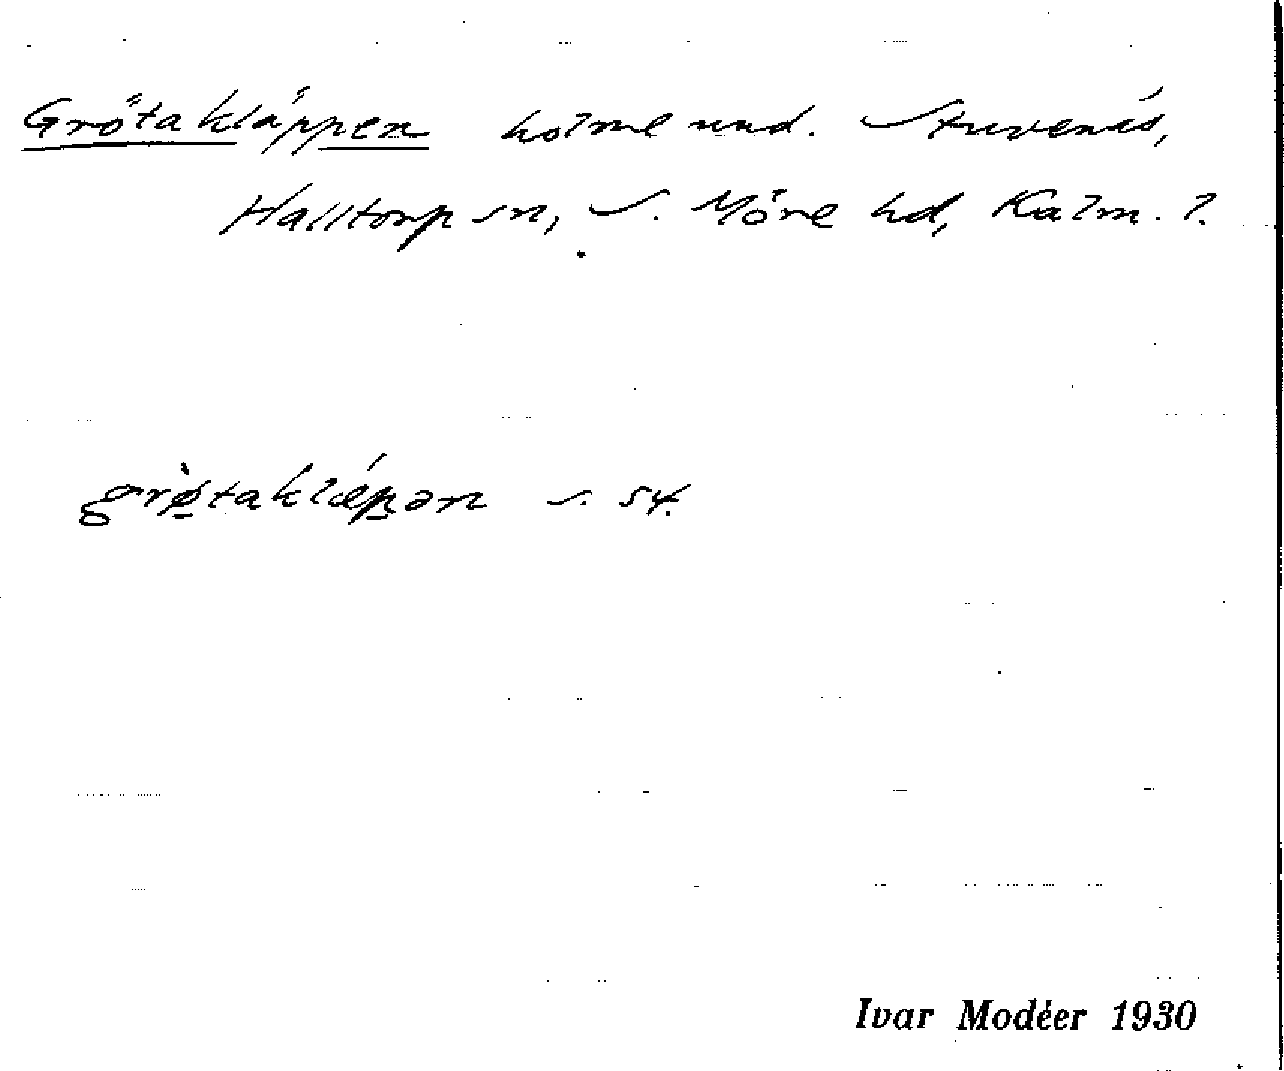 Grötakläppen holme und. Stuvenäs,
Halltorp sn, S. Möre hd, Kalm. l.
grø̀taklǽpən s. st.
Ivar Modéer 1930